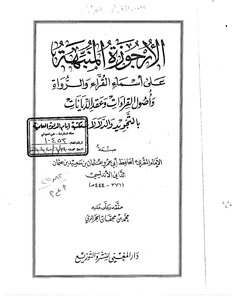 الأرجوزة المنبهة
على أسماء القراء والرواة
وأصول القراءات وعقد الديانات
بالتجويد والدلالات
صنعة
الإمام المقرئ الحافظ أبي عمرو عثمان بن سعيد بن عثمان
الداني الأندلسي
(٣٧١ - ٤٤٤هـ)
حققه وعلق عليه
محمد بن مجقان الجزائري
دار المغني للنشر والتوزيع